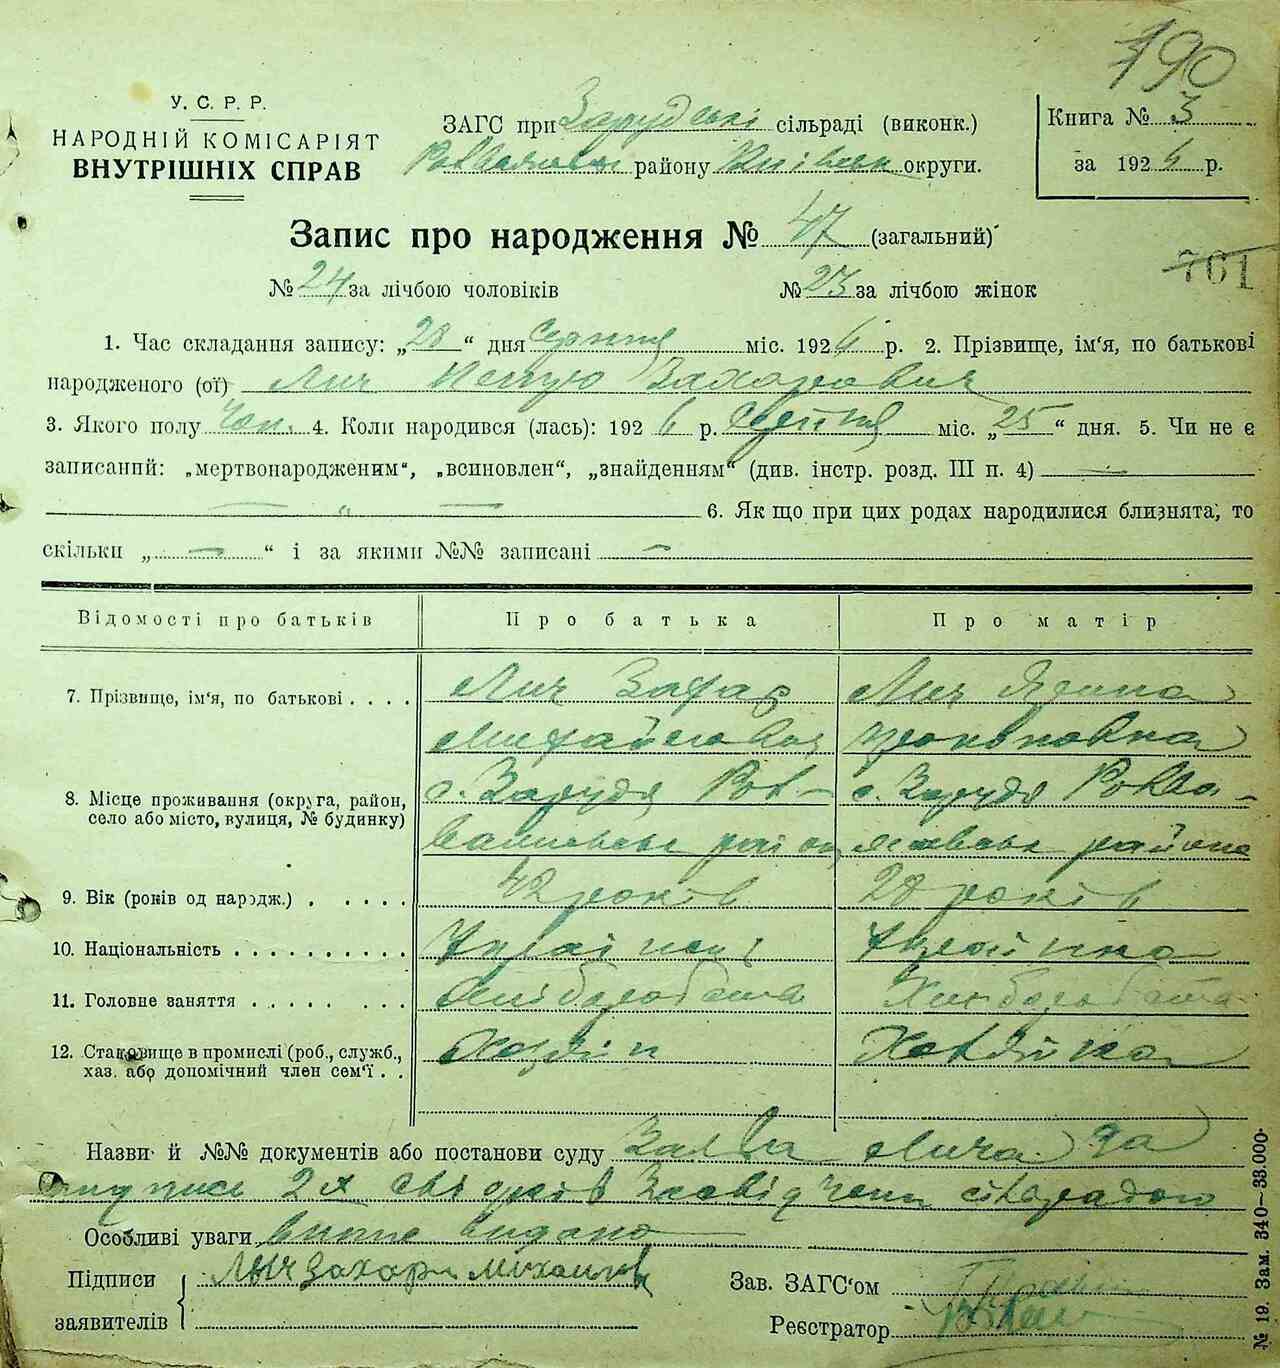 190
У. С. Р. Р.
НАРОДНІЙ КОМІСАРІЯТ
ВНУТРІШНІХ СПРАВ
ЗАГС при Зарудські сільраді (виконк.)
району Київськ округи.
Книга № 3
за 1926 р.
Запис про народження № 47 (загальний)
761
№ 24 за лічбою чоловіків
№ 23 за лічбою жінок
1. Час складання запису: „28“ дня серпня міс. 1926 р. 2. Прізвище, ім'я, по батькові
народженого (ої) Лич Петро Захарович
3. Якого полу Чол. 4. Коли народився (лась): 1926 р. Серпня міс. „25“ дня. 5. Чи не є
записаний: „мертвонародженим“, „всиновлен“, „знайденням“ (див. інстр. розд. III п. 4) —
— „ — 6. Як що при цих родах народилися близнята, то
скільки „—“ і за якими №№ записані —
Відомості про батьків Про батька Про матір
7. Прізвище, ім'я, по батькові . . . . Лич Захар Лич
Михайлович
8. Місце проживання (округа, район, с. Зарудя Ров- с. Зарудя Роква-
село або місто, вулиця, № будинку) району
9. Вік (років од народж.) . . . . . 42 років 28 років
10. Національність . . . . . . . . . . Українец Українка
11. Головне заняття . . . . . . . . Хліборобства Хліборобства
12. Становище в промислі (роб., служб., Хазяін Хазяйка
хаз. або допомічний член сем'ї . .
Назви й №№ документів або постанови суду Заява Лича за
підписе 2х свідків Засвідчена сільрадою
Особливі уваги видано
Підписи Лыч Захари Михаилов Зав. ЗАГС'ом
заявителів Реєстратор
№ 19. Зам. 340—33.000